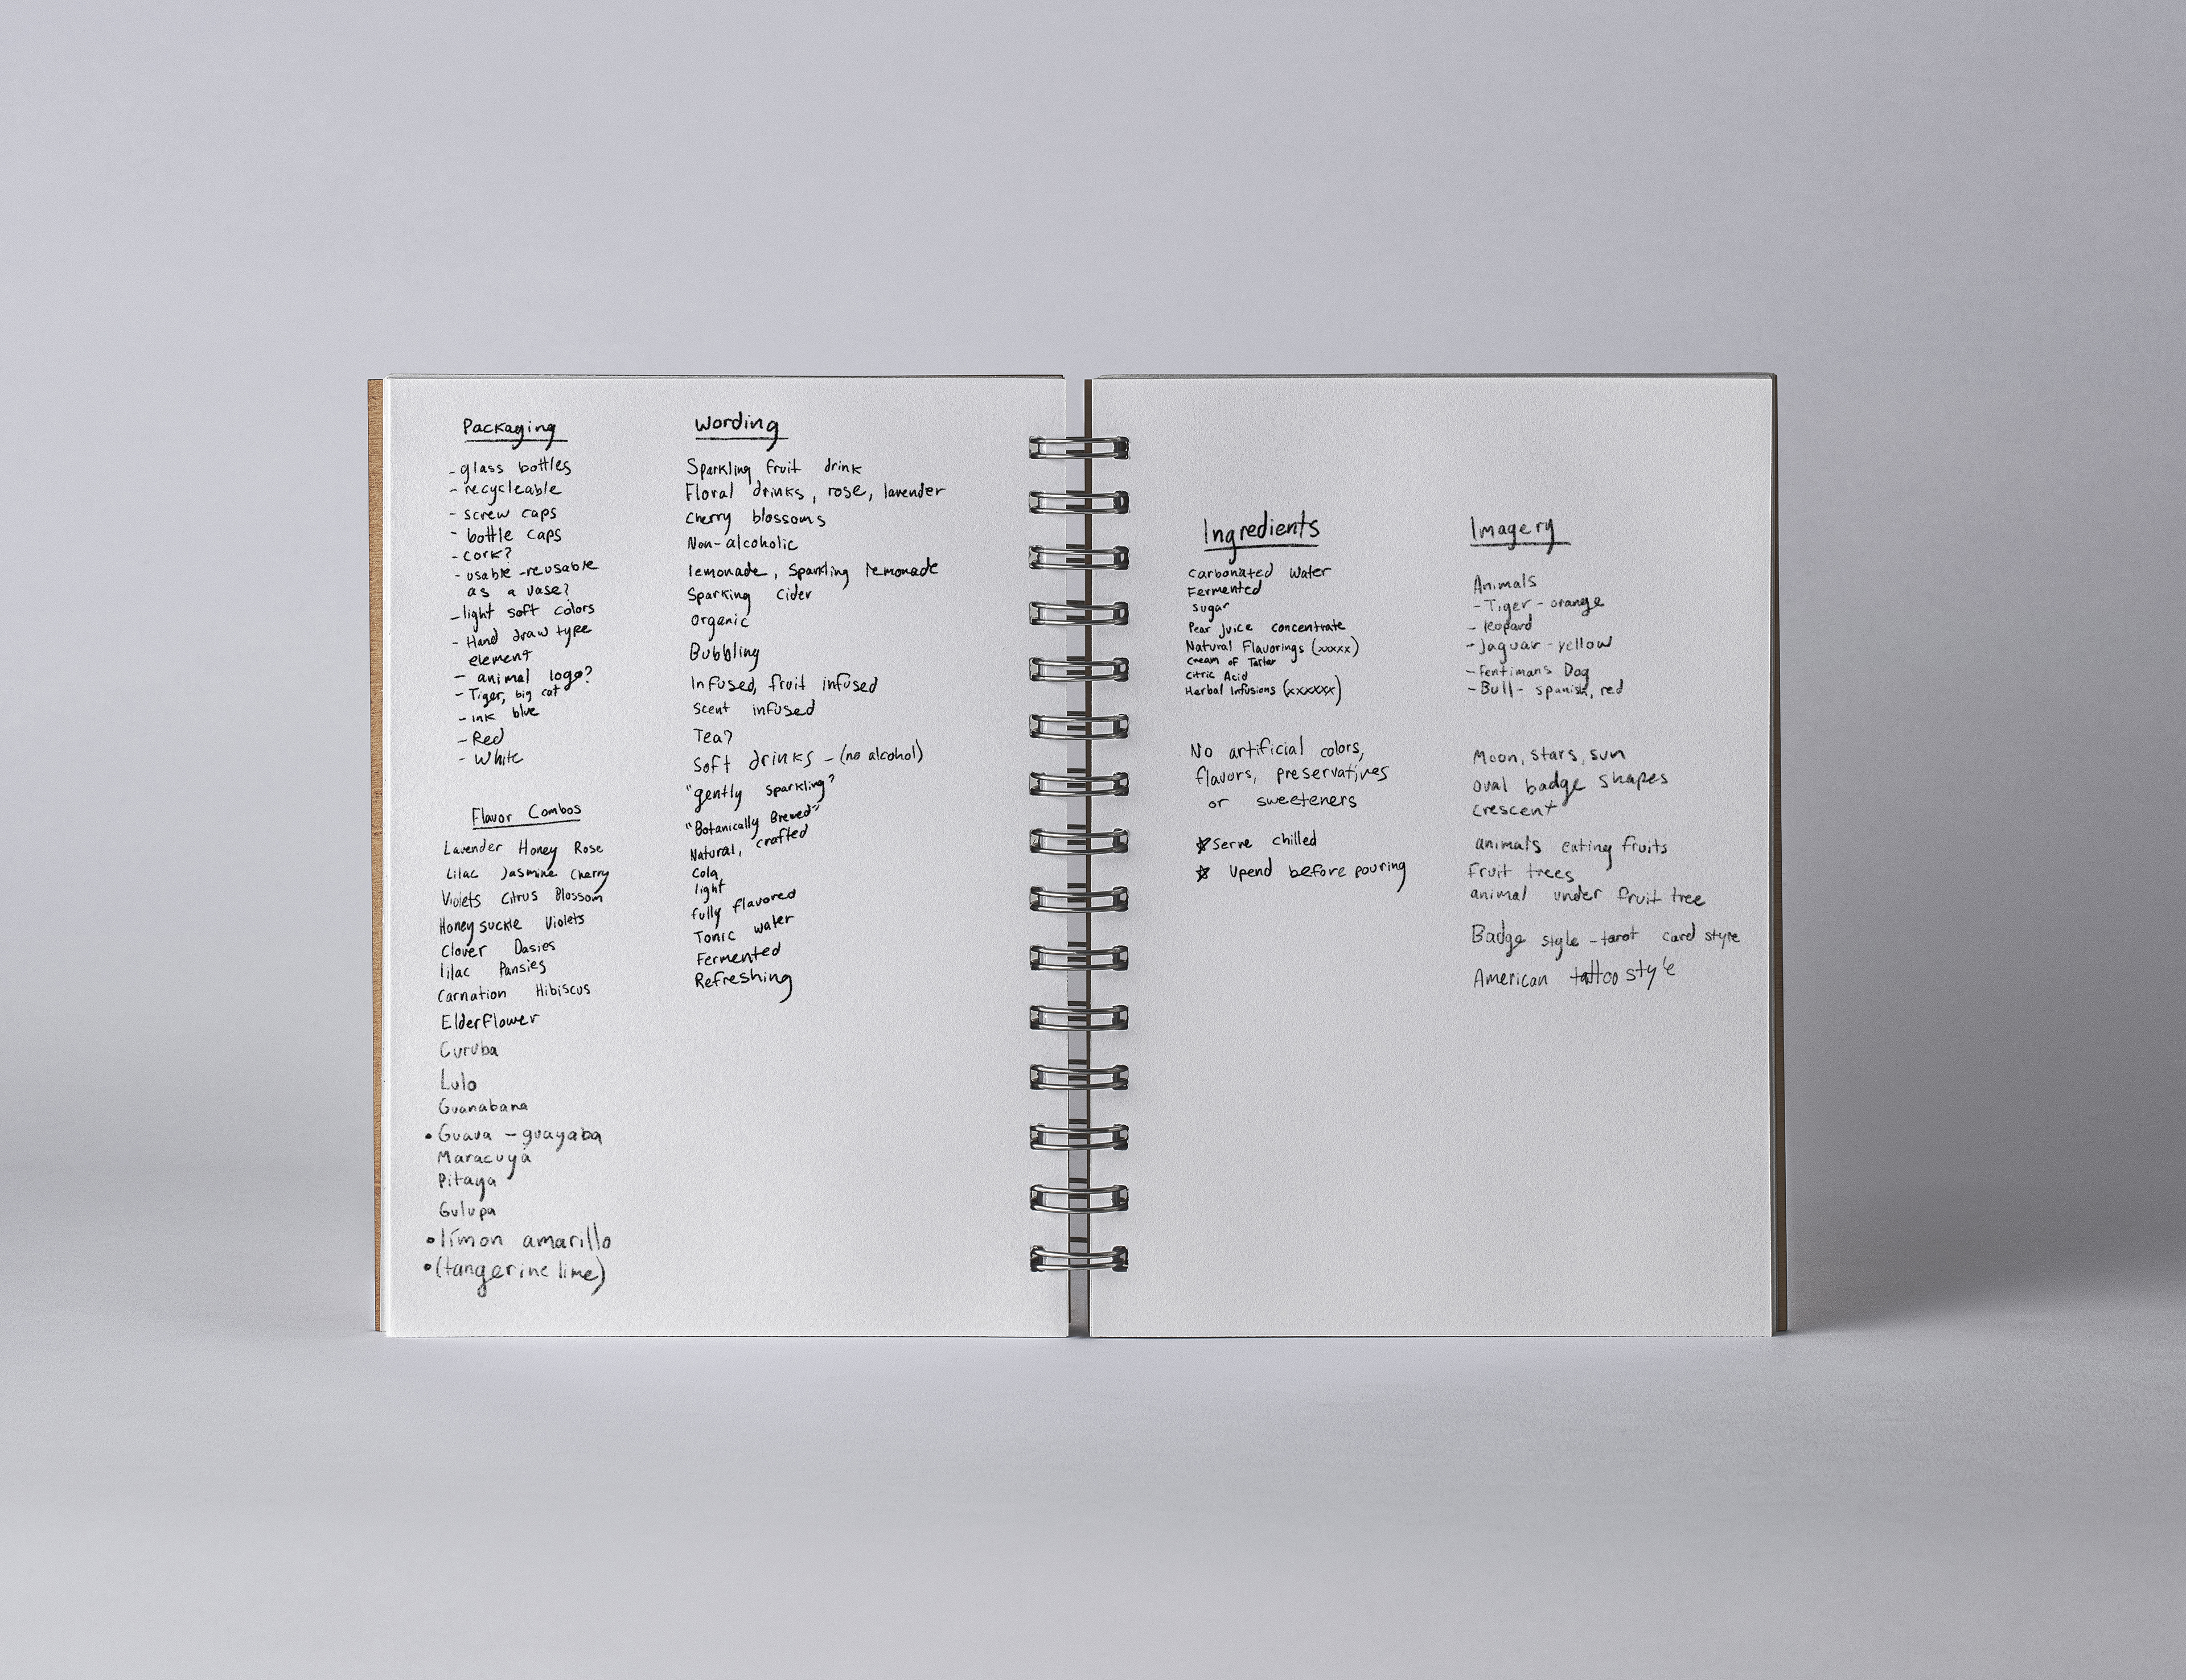 Packaging
-glass bottles
- recycleable
- screw caps
- bottle caps
- cork?
- usable -reusable
as a vase?
-light soft colors
- Hand draw type
element
- animal logo?
- Tiger, big cat
- ink blue
- Red
- White
Flavor Combos
Lavender Honey Rose
Lilac Jasmine Cherry
Violets Citrus Blossom
Honeysuckle Violets
Clover Dasies
lilac Pansies
Carnation Hibiscus
Elderflower
Curuba
Lulo
Guanabana
• Guava - guayaba
Maracuyá
Pitaya
Gulupa
• límon amarillo
• (tangerine lime)
Wording
Sparkling fruit drink
Floral drinks, rose, lavender
Cherry blossoms
Non-alcoholic
lemonade, Sparkling lemonade
Sparking Cider
Organic
Bubbling
Infused, fruit infused
Scent infused
Tea?
Soft drinks - (no alcohol)
"gently sparkling"
"Botanically Brewed"
Natural, crafted
Cola
light
fully flavored
Tonic water
Fermented
Refreshing
Ingredients
Carbonated Water
Fermented
sugar
Pear juice concentrate
Natural Flavorings (xxxxx)
Cream of Tartar
Citric Acid
Herbal Infusions (xxxxxx)
No artificial colors,
flavors, preservatives
or sweeteners
☆ Serve chilled
☆ Upend before pouring
Imagery
Animals
- Tiger - orange
- leopard
- Jaguar - yellow
- Fentimans Dog
- Bull - spanish, red
Moon, stars, sun
oval badge shapes
crescent
animals eating fruits
Fruit trees
animal under fruit tree
Badge style - tarot card style
American tattoo style